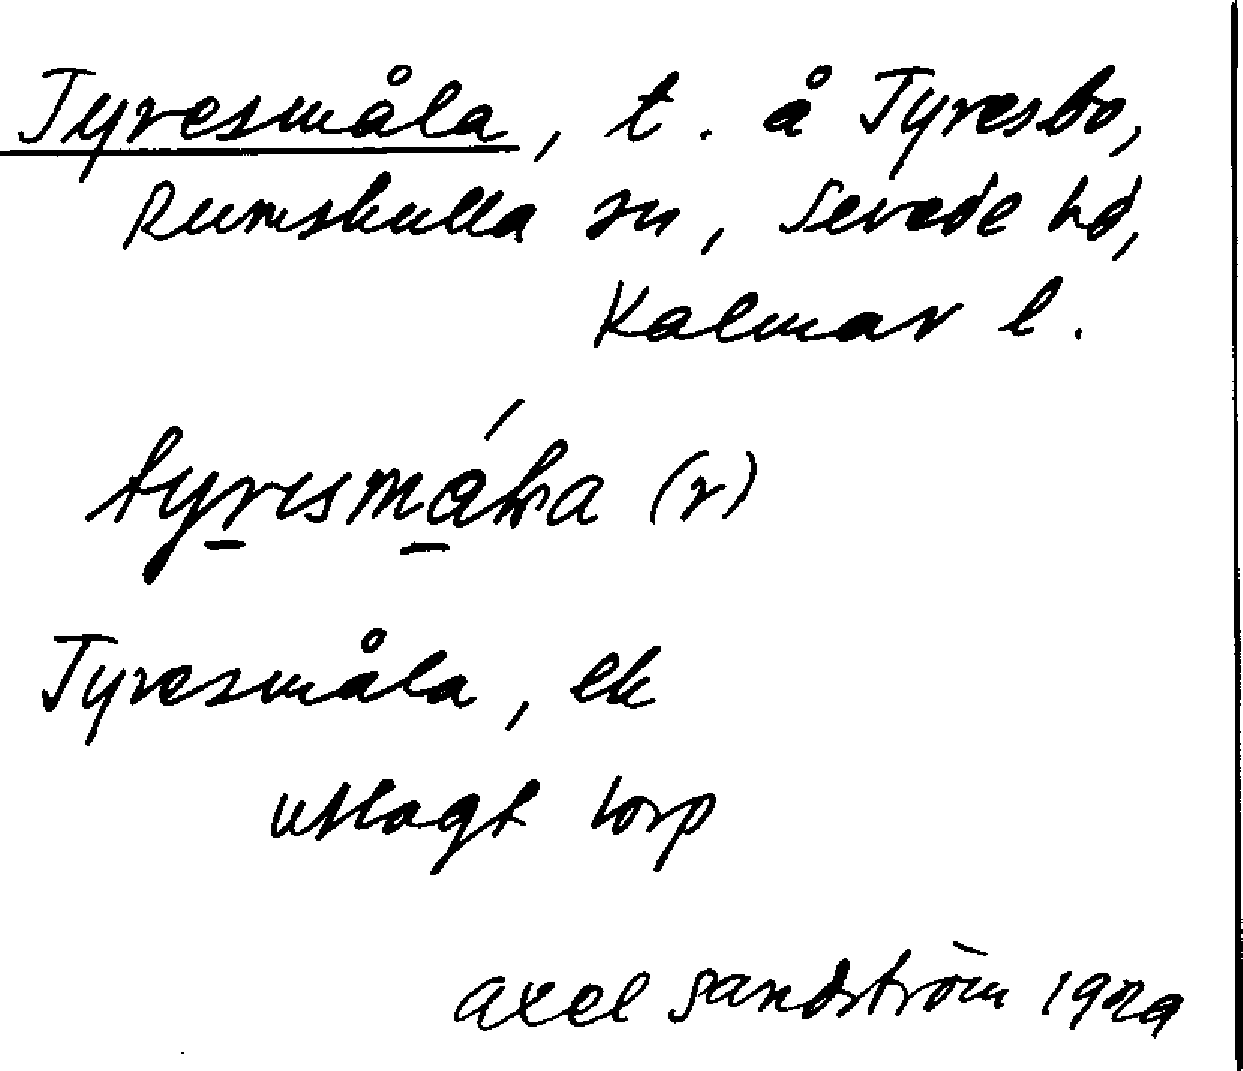 Tyresmåla, t. å Tyresbo,
Rumskulla sn, Sevede hd,
Kalmar l.
(r)
Tyresmåla, ek
utlagt torp
Axel Sandström 1929